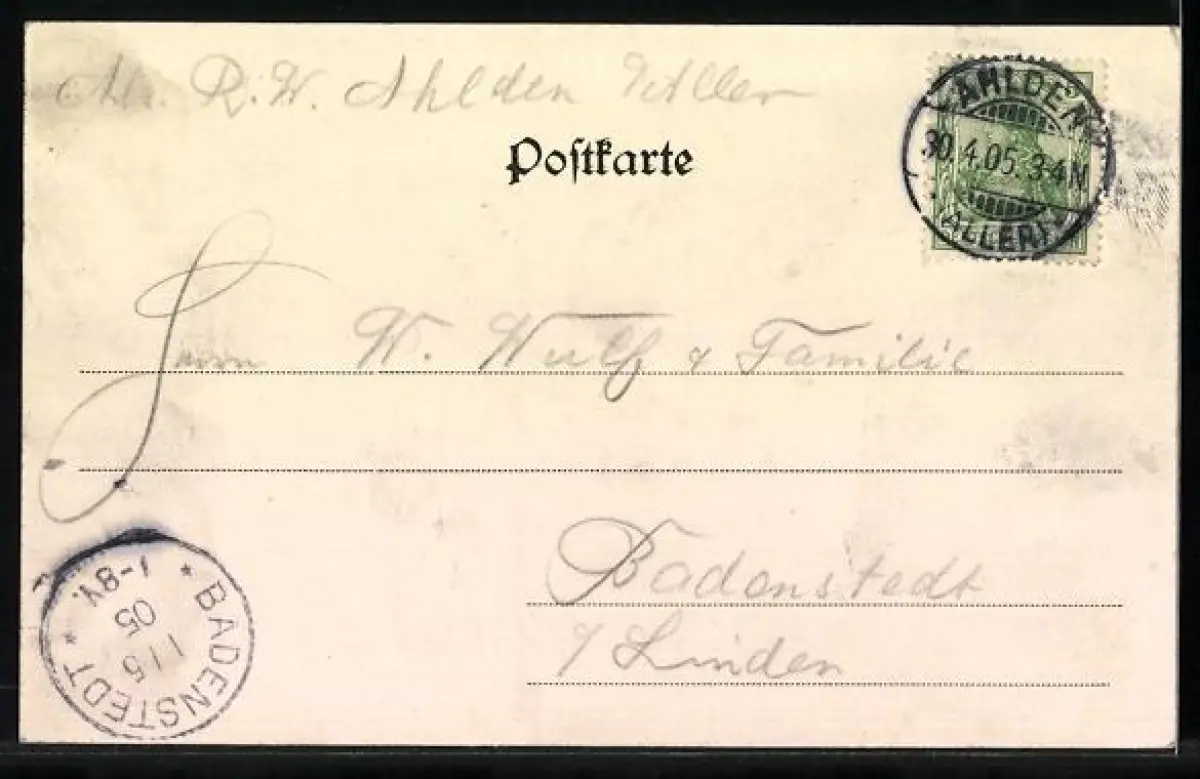 R. W. Ahlden a/Aller
Postkarte
AHLDEN
30.4.05. 3-4 N
(ALLER)
Herrn W. Wulf & Familie
Badenstedt
b/ Linden
* BADENSTEDT *
1 5
05
7-8V.